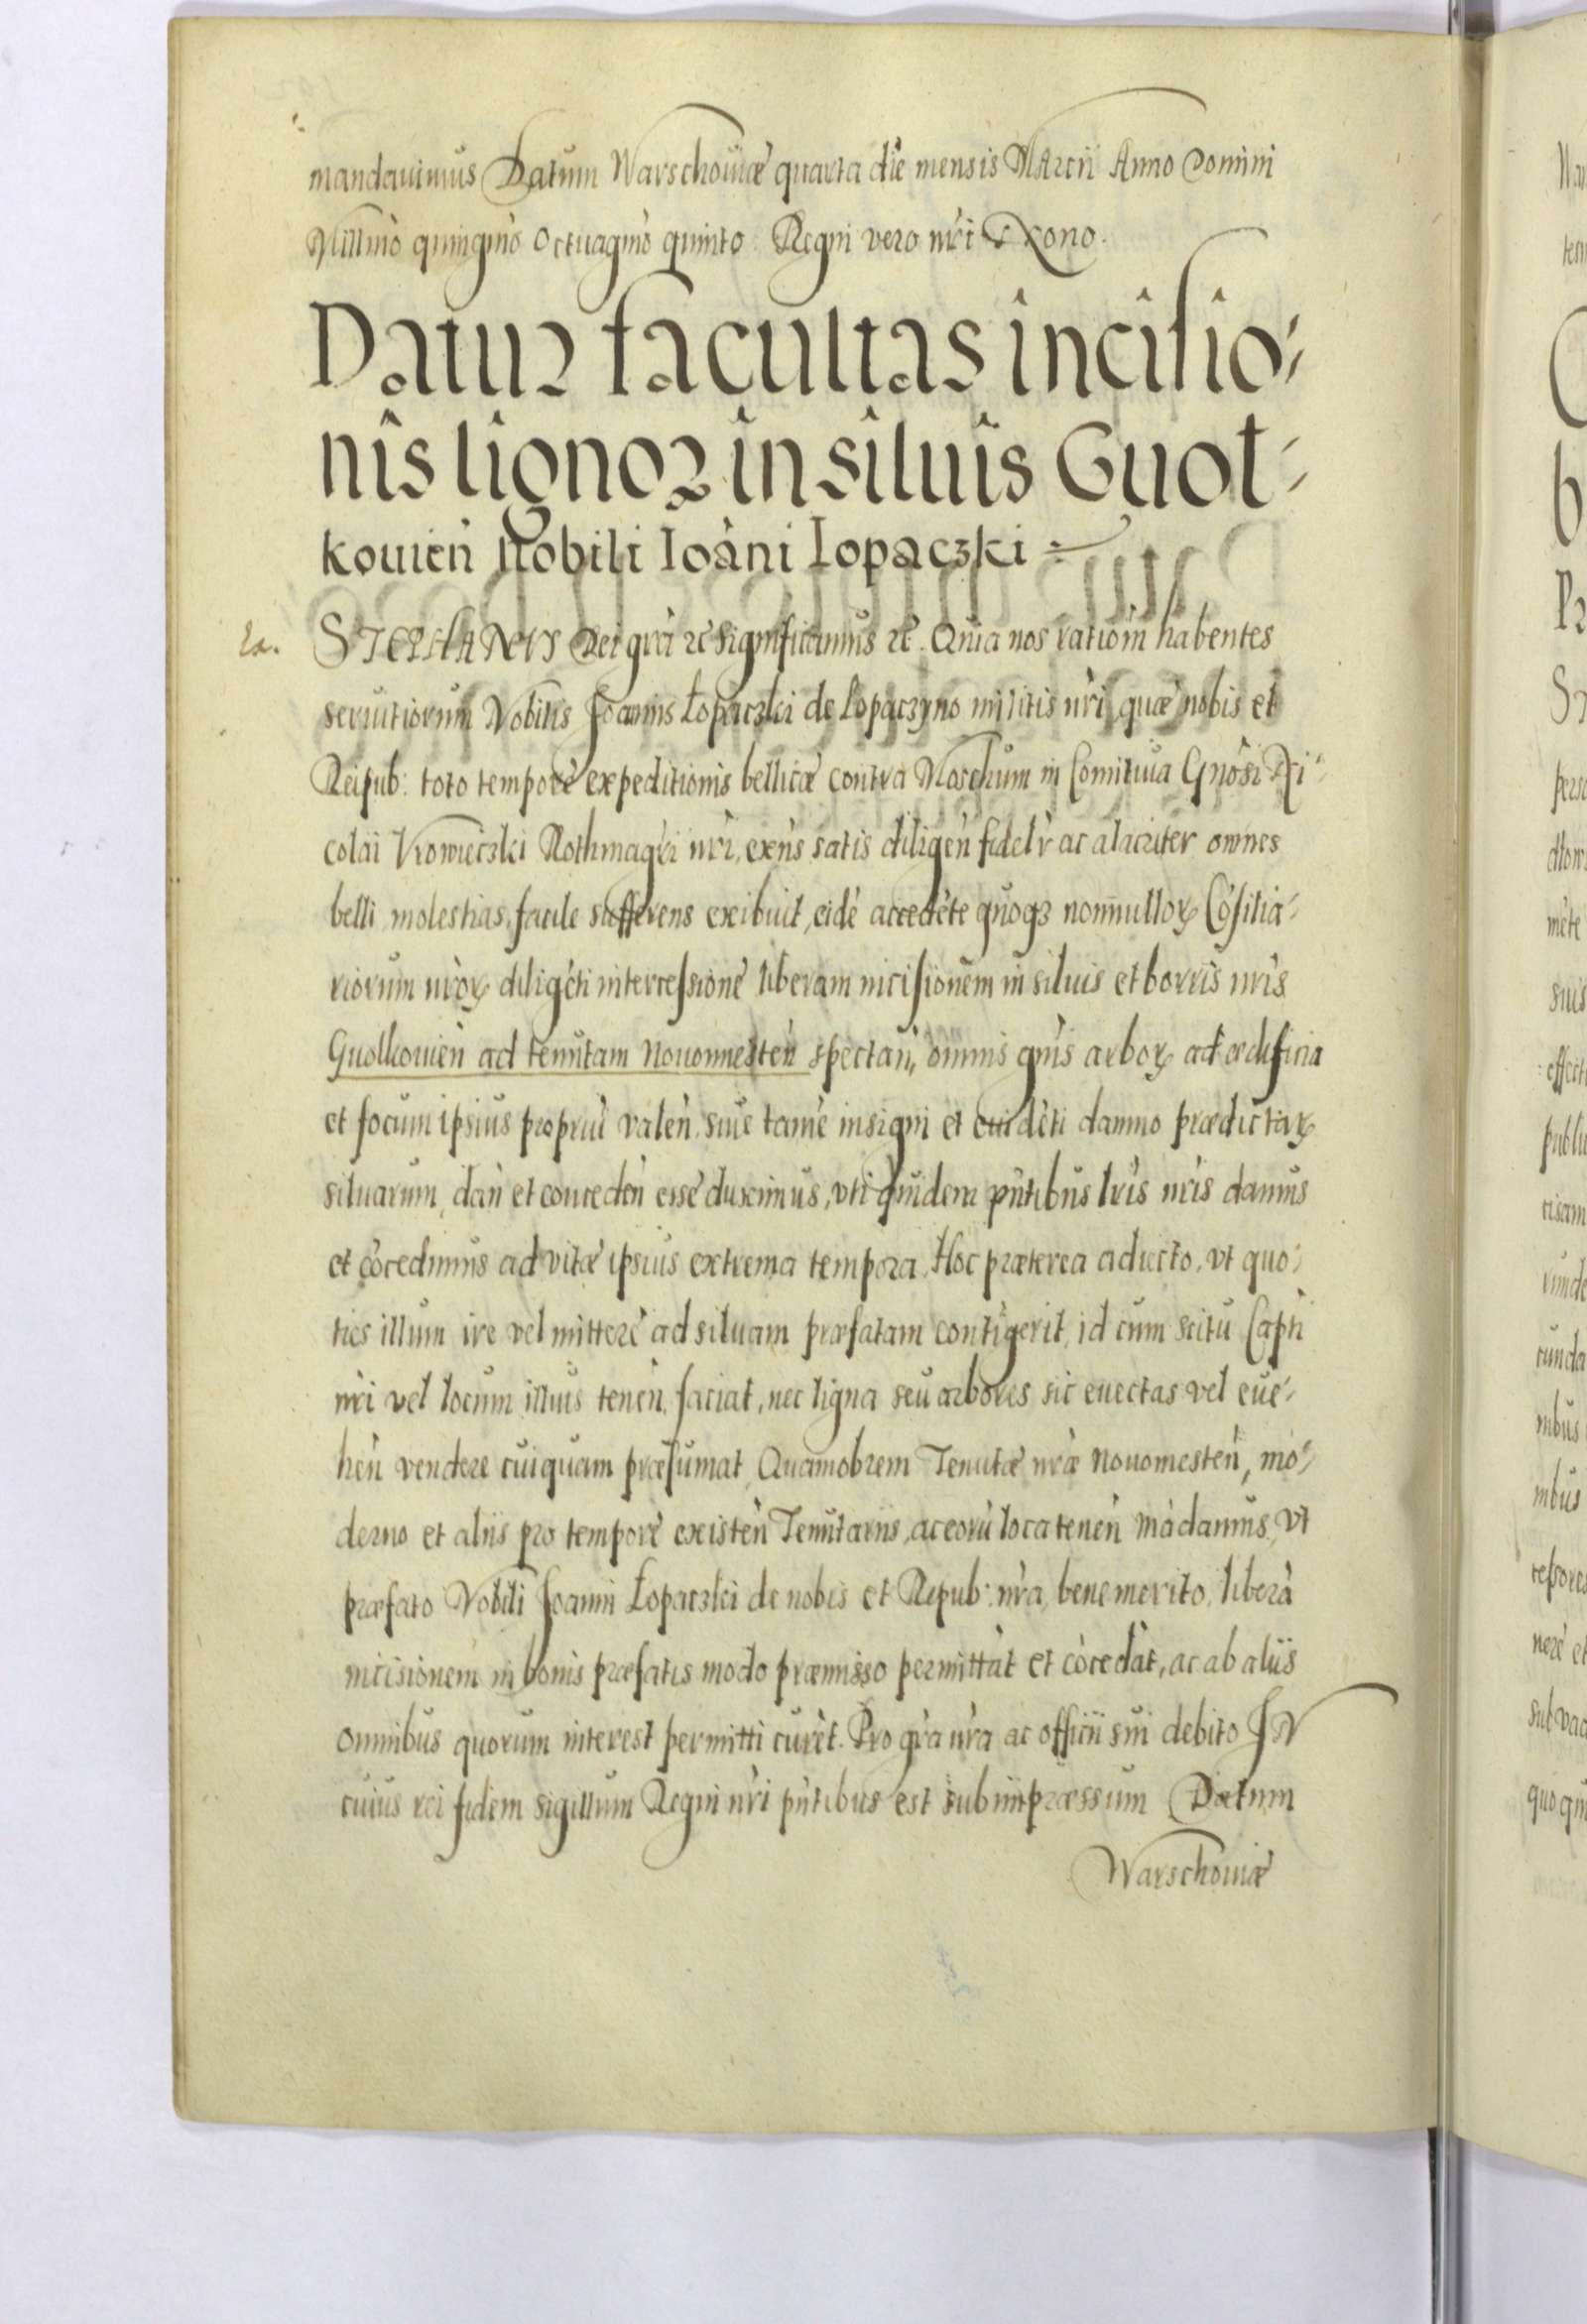 mandauimus Datum Warschouiæ quarta die mensis Martii Anno Domini
Millmo quingmo octuagmo quinto Regni vero nri Nono.
Datur facultas incisio-
nis lignoꝝ in siluis Guot-
kouien Nobili Ioani Lopaczki
STEPHANUS Dei gra ꝛc Significamus ꝛc. Quia nos rationem habentes
seruitiorum Nobilis Joannis Lopaczki de Lopaczyno militis nri, quæ nobis et
Reipub: toto tempore expeditionis bellicæ contra Moschum in Comitiua Gnosi Ni-
colai Vrowieczki Rothmagri nri, exns satis diligen fidelr ac alacriter omnes
belli molestias, facile sufferens exibuit, eide accedete quoqꝫ nonnulloꝝ Cosilia-
riorum nroꝝ diligeti intercessione liberam incisionem in siluis et borris nris
Guolkouien ad tenutam Nouomiesten spectan, omnis gnis arboꝝ ad ædificia
et focum ipsius propriu valen, sine tame insigni et euideti damno prædictaꝝ
siluarum, dan et conceden esse duximus, vti quidem pntibus lris nris damus
et cocedimus ad vitæ ipsius extrema tempora, Hoc præterea adiecto, vt quo-
ties illum ire vel mittere ad siluam præfatam contigerit, id cum scitu Capti
nri vel locum illius tenen, faciat, nec ligna seu arbores sic euectas vel eue-
hen vendere cuiquam præsumat Quamobrem Tenutæ nræ Nouomesten, mo-
derno et aliis pro tempore existen Tenutariis, ac eoru loca tenen madamus, vt
præfato Nobili Joanni Lopaczki de nobis et Repub: nra, bene merito, libera
incisionem in bonis præfatis modo præmisso permittat et cocedat, ac ab aliis
omnibus quorum interest permitti curet. Pro gra nra ac officii sui debito IN
cuius rei fidem sigillum Regni nri pntibus est subimpræssum Datum
Warschouiæ